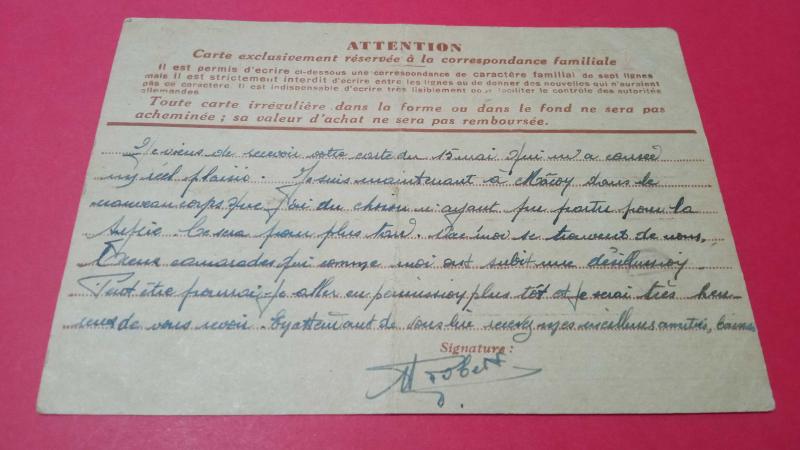 ATTENTION
Carte exclusivement réservée à la correspondance familiale
Il est permis d'écrire ci-dessous une correspondance de caractère familial de sept lignes
mais il est strictement interdit d'écrire entre les lignes ou de donner des nouvelles qui n'auraient
pas ce caractère. Il est indispensable d'écrire très lisiblement pour faciliter le contrôle des autorités
allemandes.
Toute carte irrégulière dans la forme ou dans le fond ne sera pas
acheminée ; sa valeur d'achat ne sera pas remboursée.
Je viens de recevoir votre carte du 15 mai qui m'a causée
un réel plaisir. Je suis maintenant à Mâcon dans le
nouveau corps que j'ai du choisir n'ayant pu partir pour la
Syrie. Ce sera pour plus tard. Avec moi se trouvent de nous,
camarades qui comme moi ont subit une désillusion
Peut être pourrai-je aller en permission plus tôt et je serai très heu-
reux de vous revoir. En attendant de vous lire recevez mes meilleures amitiés, baisers
Signature :
Robert